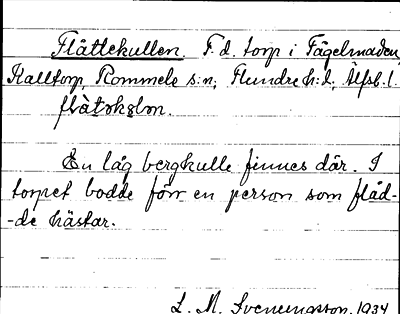 Flåttekullen. F.d. torp i Fågelmaden,
Kalltorp, Rommele s:n, Flundre h:d, Älfsb. l.
En låg bergkulle finnes där. I
torpet bodde förr en person som fläd-
-de hästar.
L. M. Svenungsson. 1934